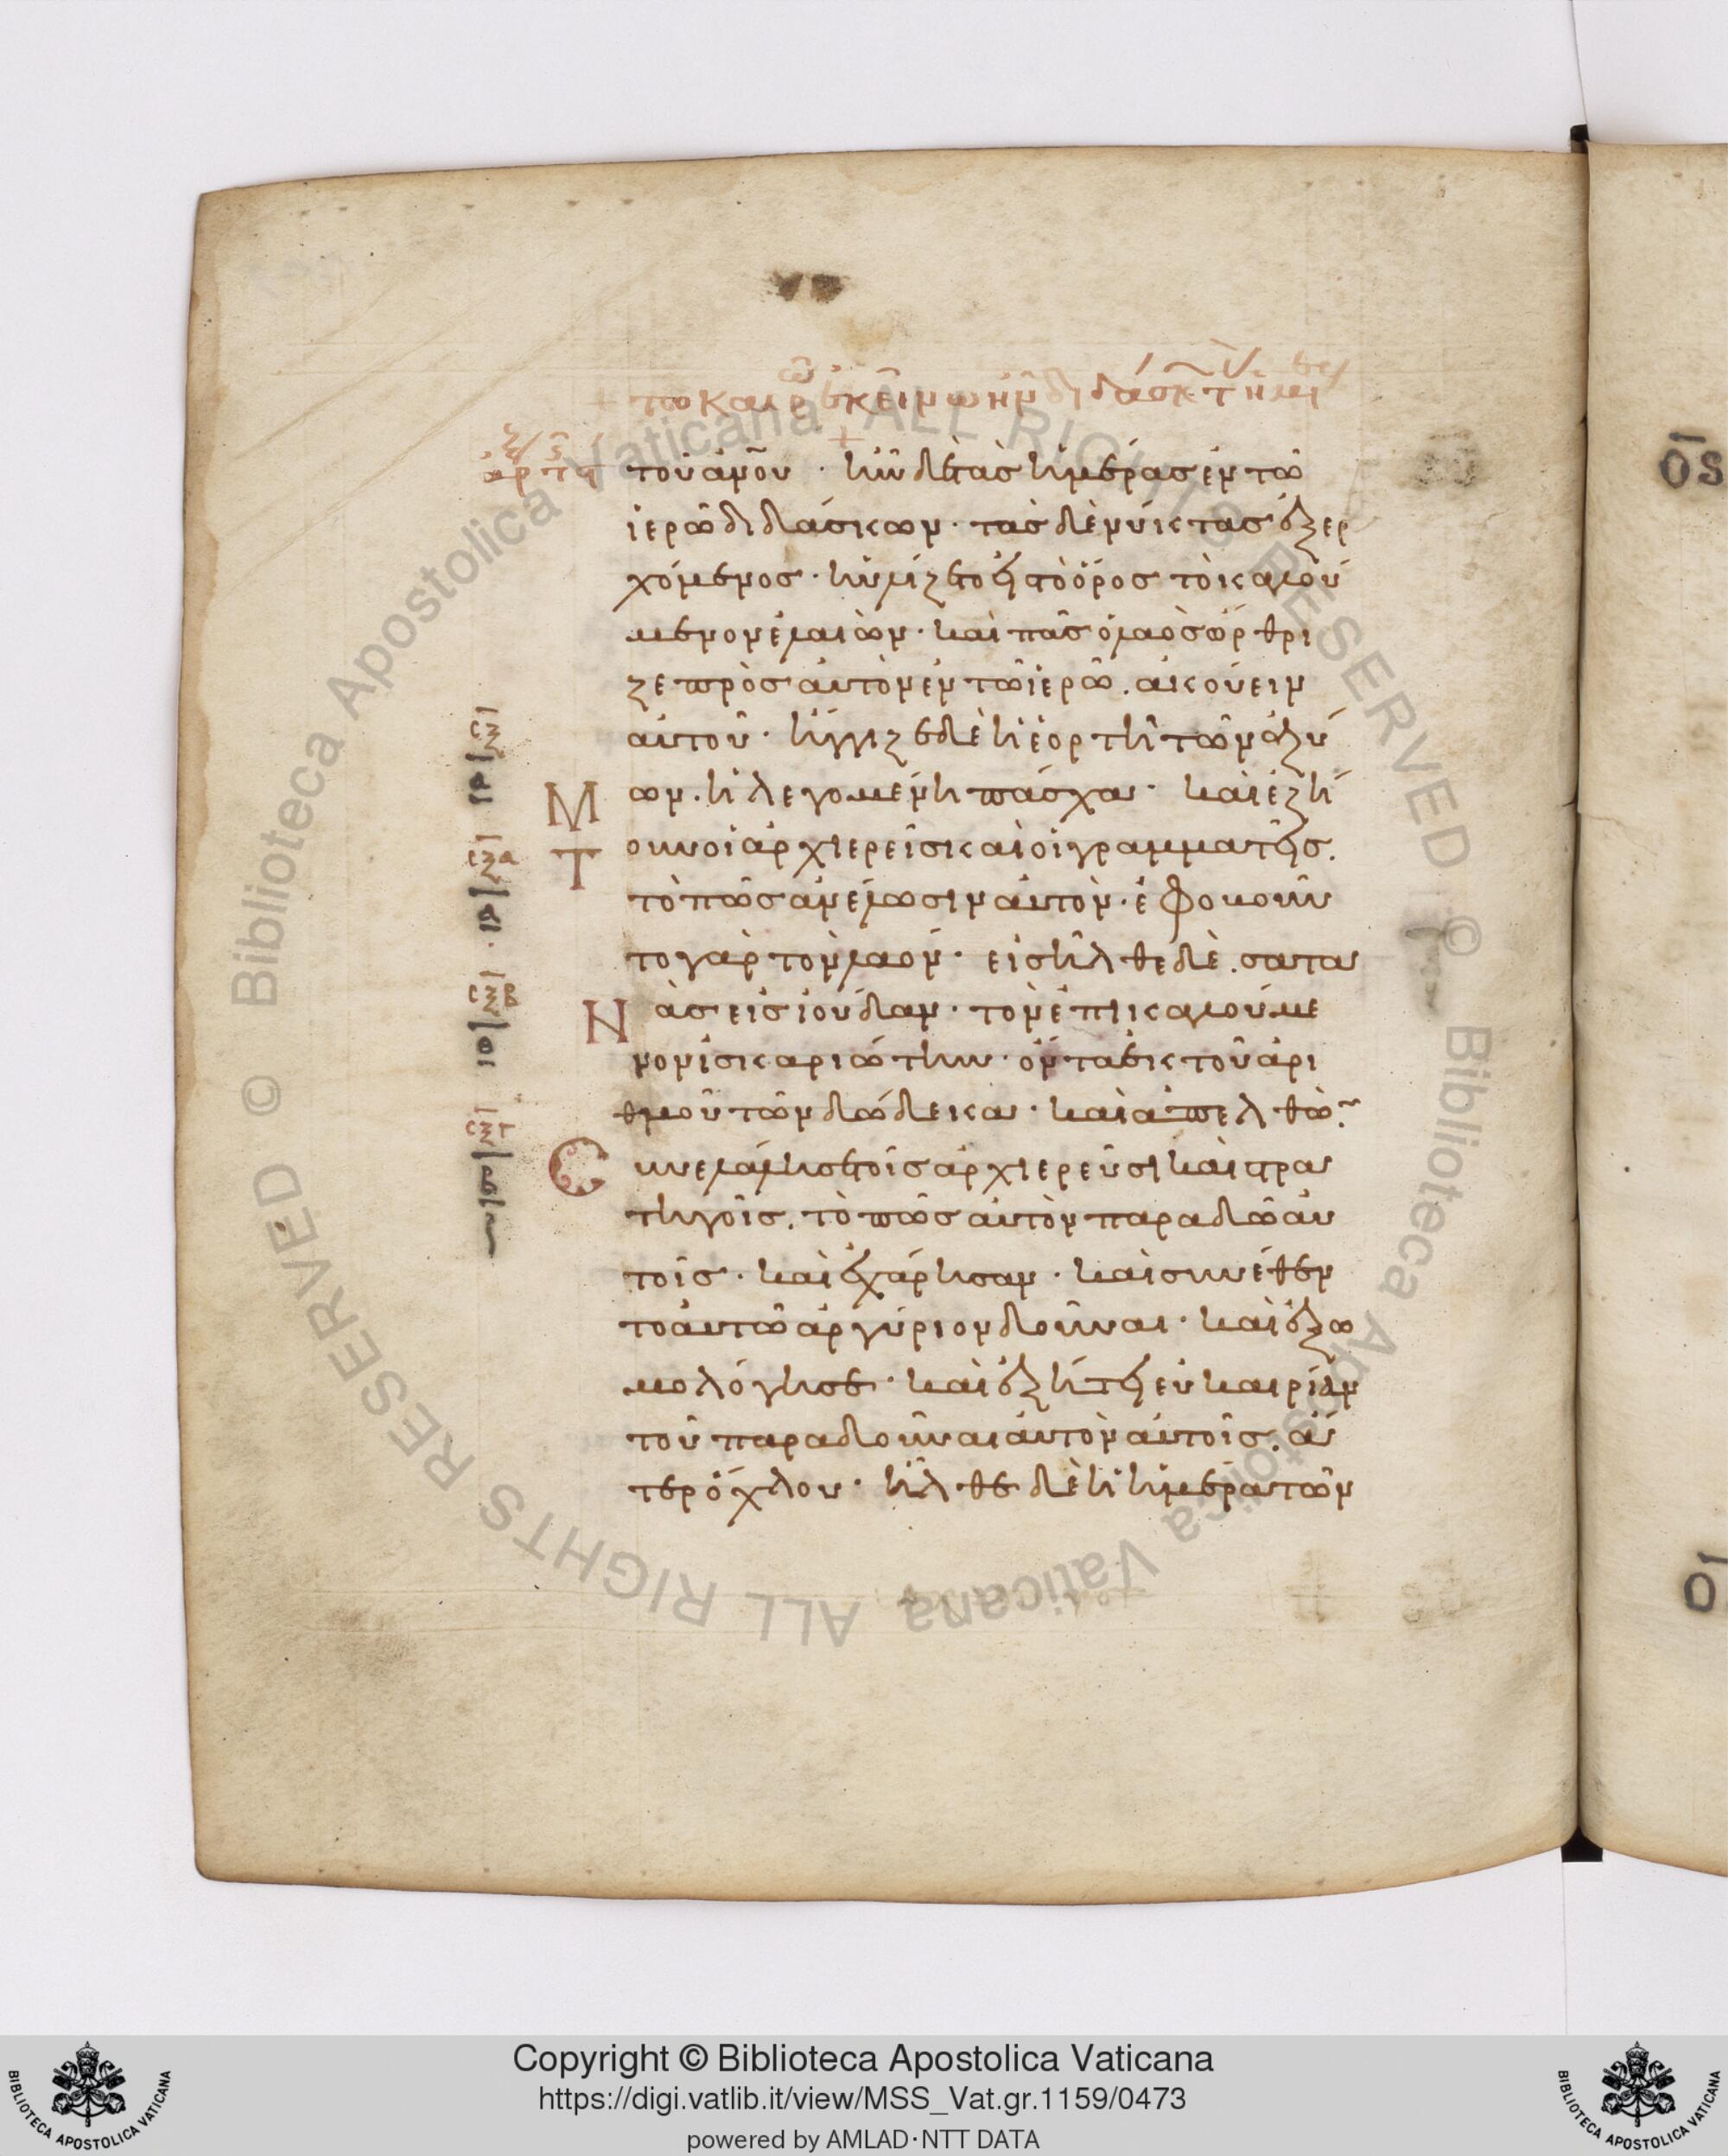 τω καιρω εκεινω ην διδάσκ
τοῦ ἀν̅ο̅υ · ἦν δὲ τὰς ἡμέρας ἐν τῶ
ἱερῶ διδάσκων · τὰς δὲ νύκτας ἐξερ
χόμενος · ηὐλίζετο εἰς τὸ ὄρος τὸ καλού
μενον ἐλαιὼν · καὶ πᾶς ὁ λαὸς ὤρθρι
ζε πρὸς αὐτὸν ἐν τῶ ἱερῶ . ἀκούειν
αὐτοῦ · ἤγγιζε δὲ ἡ ἑορτὴ τῶν ἀζύ
ων . ἡ λεγομένη πάσχα · καὶ ἐζή
Μ
ουν οἱ ἀρχιερεῖς καὶ οἱ γραμματεῖς .
Τ
τὸ πῶς ἀνέλωσιν αὐτὸν · ἐφοβοῦν
το γὰρ τὸν λαόν · εἰσῆλθε δὲ . σατα
Ν ᾶς εἰς ἰούδαν · τὸν ἐπικαλούμε
νον ἰσκαριώτην · ὄντα ἐκ τοῦ ἀρι
θμοῦ τῶν δώδεκα · καὶ ἀπελθὼ
C υνελάλησε τοῖς ἀρχιερεῦσι καὶ στρα
τηγοῖς . τὸ πῶς αὐτὸν παραδῶ αὐ
τοῖς · καὶ ἐχάρησαν · καὶ συνέθεν
το αὐτῶ ἀργύριον δοῦναι · καὶ ἐξω
μολόγησε · καὶ ἐζήτει εὐκαιρίαν
τοῦ παραδοῦναι αὐτὸν αὐτοῖς . ἄ
τερ ὄχλου · ἦλθε δὲ ἡ ἡμέρα τῶν
CΞ
CΞΑ
CΞΒ
CΞΓ
Copyright © Biblioteca Apostolica Vaticana
https://digi.vatlib.it/view/MSS_Vat.gr.1159/0473
powered by AMLAD·NTT DATA
BIBLIOTECA APOSTOLICA VATICANA
BIBLIOTECA APOSTOLICA VATICANA
© Biblioteca Apostolica Vaticana ALL RIGHTS RESERVED
© Biblioteca Apostolica Vaticana ALL RIGHTS RESERVED